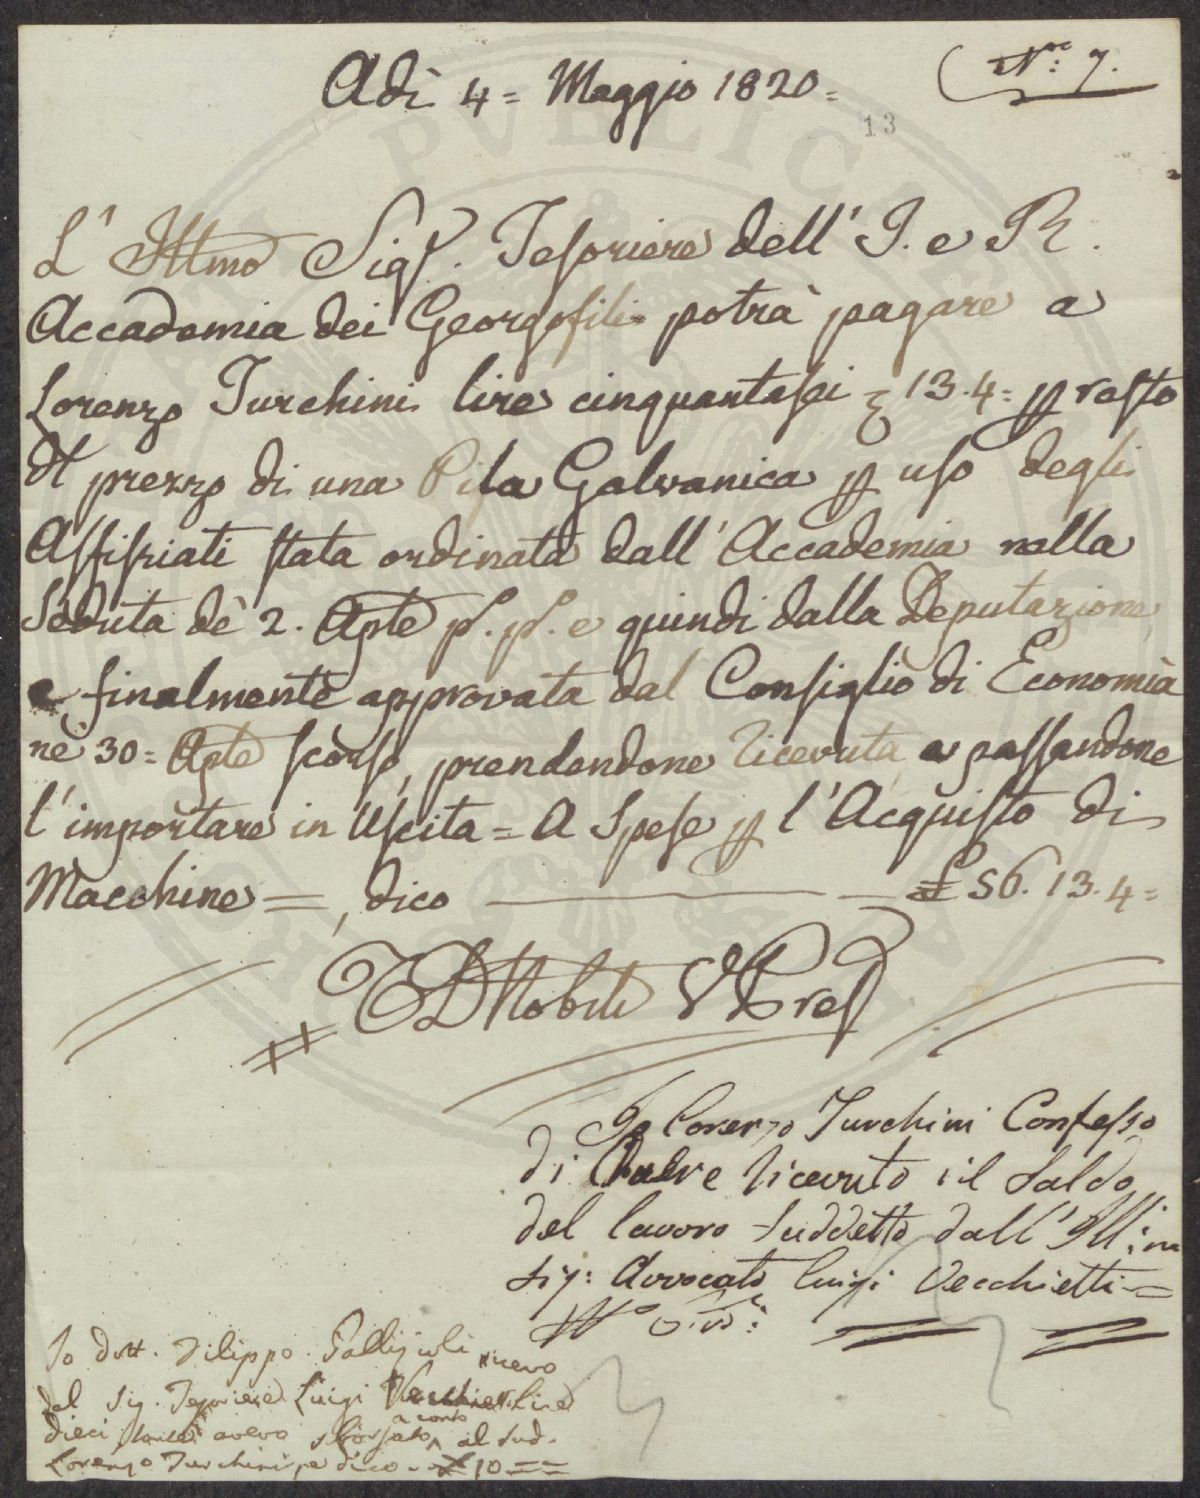 Adì 4 = Maggio 1820 =
N.º 7.
13
L' Illmo Sigr. Tesoriere dell' I. e R.
Accademia dei Georgofili potrà pagare a
Lorenzo Turchini lire cinquantasei 13.4 = p resto
del prezzo di una Pila Galvanica p uso degli
Assisziati stata ordinata dall' Accademia nella
Seduta de' 2. Aple p. p. e quindi dalla Deputazione,
e finalmente approvata dal Consiglio di Economia
ne' 30 = Aple scorso, prendendone ricevuta e passandone
l'importare in Uscita = A Spese p l'Acquisto di
Macchine =, dico £ 56. 13. 4 =
Nobili VPres
Io Lorenzo Turchini Confesso
di Avere ricevuto il Saldo
del lavoro Suddetto dall' Ill:m
Sig: Avvocato Luigi Vecchietti =
Io Dott. Filippo Gallizioli ricevo
dal Sig. Tesoriere Luigi Vecchietti Lire
dieci avevo sborsato a conto al Sud.
Lorenzo Turchini, e dico £ 10 = =
PUBLICAE